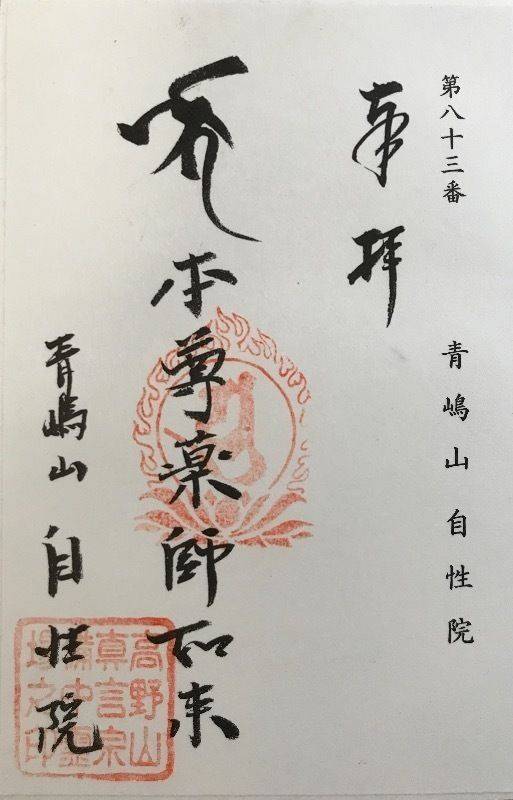 第八十三番 青嶋山 自性院
奉拝
本尊薬師如来
青嶋山 自性院
高野山
真言宗
場之印